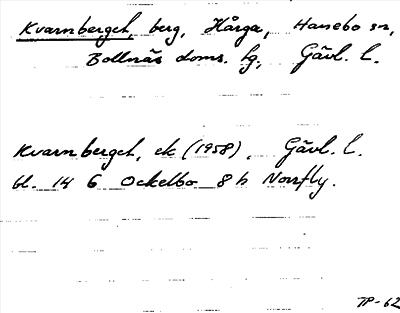 Kvarnberget, berg, Hårga, Hanebo sn,
Bollnäs doms. hg, Gävl. l.
Kvarnberget, ek (1958), Gävl. l.
bl. 14 G Ockelbo 8 h Norrfly.
TP-62